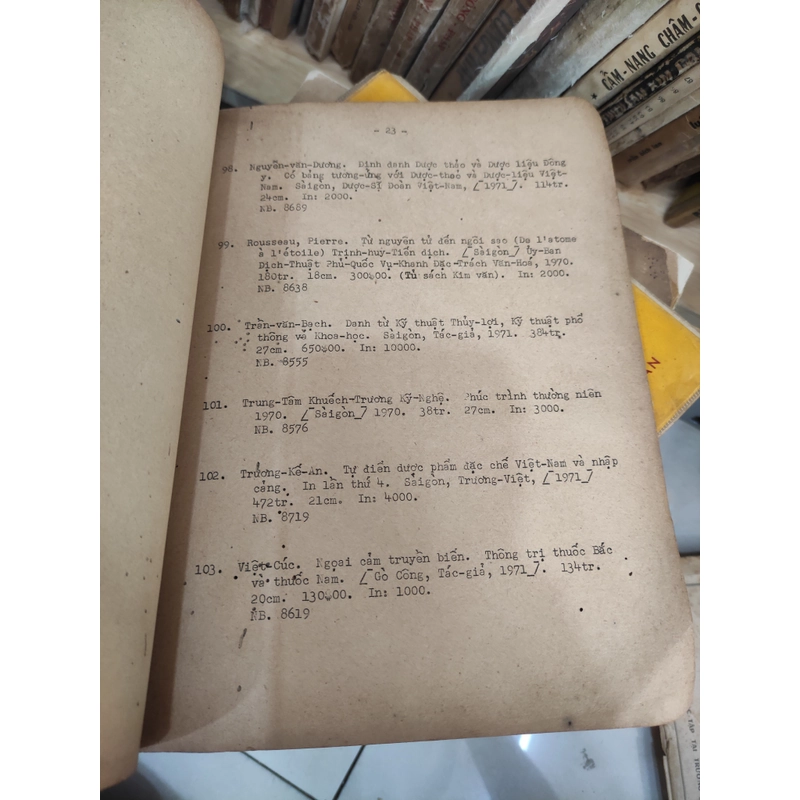 CẨM-NANG CHÂM-C
- 23 -
98. Nguyễn-văn-Dương. Định danh Dược thảo và Dược liệu Đông
y. Có bảng tương-ứng với Dược-thảo và Dược-liệu Việt-
Nam. Sàigòn, Dược-Sĩ Đoàn Việt-Nam, [1971]. 114tr.
24cm. In: 2000.
NB. 8689
99. Rousseau, Pierre. Từ nguyên tử đến ngôi sao (De l'atome
à l'étoile) Trịnh-huy-Tiến dịch. [Sàigòn] Ủy-Ban
Dịch-Thuật Phủ-Quốc Vụ-Khanh Đặc-Trách Văn-Hoá, 1970.
180tr. 18cm. 300$00. (Tủ sách Kim văn). In: 2000.
NB. 8638
100. Trần-văn-Bạch. Danh từ Kỹ thuật Thủy-lợi, Kỹ thuật phổ
thông và Khoa-học. Sàigòn, Tác-giả, 1971. 384tr.
27cm. 650$00. In: 10000.
NB. 8555
101. Trung-Tâm Khuếch-Trương Kỹ-Nghệ. Phúc trình thường niên
1970. [Sàigòn] 1970. 38tr. 27cm. In: 3000.
NB. 8576
102. Trương-Kế-An. Tự điển dược phẩm đặc chế Việt-Nam và nhập
cảng. In lần thứ 4. Sàigòn, Trương-Việt, [1971]
472tr. 21cm. In: 4000.
NB. 8719
103. Việt-Cúc. Ngoại cảm truyền biến. Thông trị thuốc Bắc
và thuốc Nam. [Gò Công, Tác-giả, 1971]. 134tr.
20cm. 130$00. In: 1000.
NB. 8619